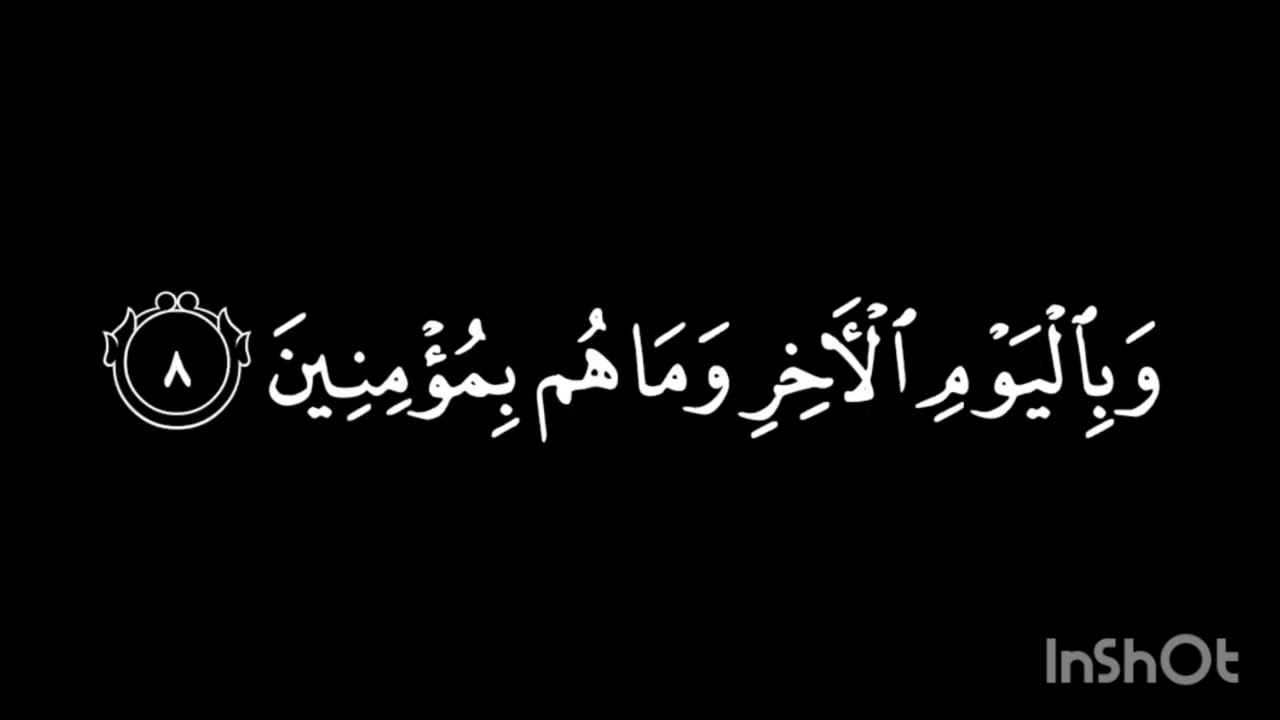 وَبِٱلْيَوْمِ ٱلْأَخِرِ وَمَا هُم بِمُؤْمِنِينَ ٨
InShOt